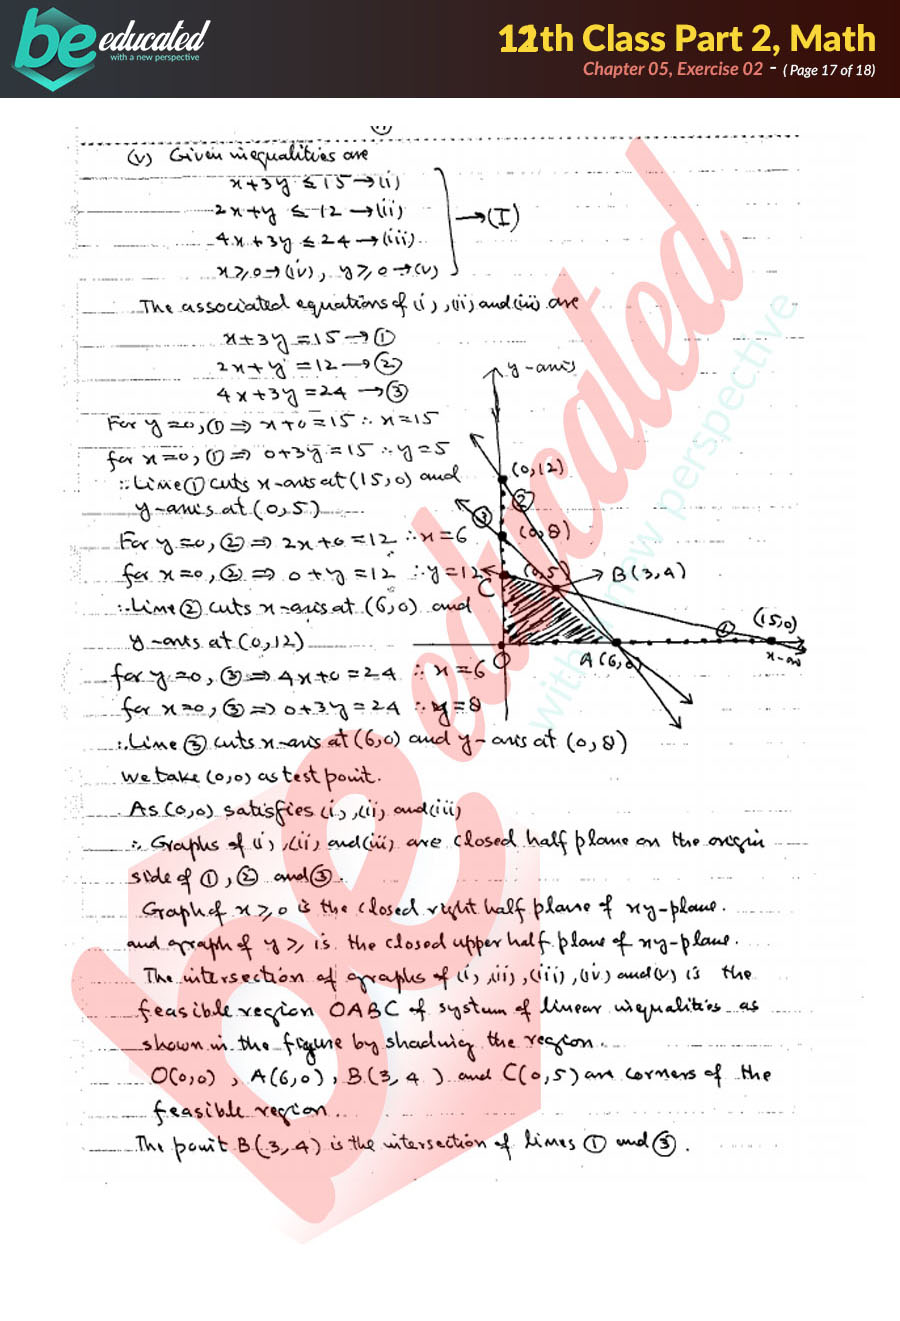 be educated
with a new perspective
12th Class Part 2, Math
Chapter 05, Exercise 02 - ( Page 17 of 18)
(v) Given inequalities are
x+3y ≤ 15 → (i)
2x+y ≤ 12 → (ii)
4x+3y ≤ 24 → (iii)
→ (I)
x ≥ 0 → (iv), y ≥ 0 → (v)
The associated equations of (i), (ii) and (iii) are
x+3y = 15 → ①
2x+y = 12 → ②
4x+3y = 24 → ③
For y=0, ① ⇒ x+0=15 ∴ x=15
for x=0, ① ⇒ 0+3y=15 ∴ y=5
∴ Line ① cuts x-axis at (15,0) and
y-axis at (0,5)
For y=0, ② ⇒ 2x+0=12 ∴ x=6
for x=0, ② ⇒ 0+y=12 ∴ y=12
∴ Line ② cuts x-axis at (6,0) and
y-axis at (0,12)
for y=0, ③ ⇒ 4x+0=24 ∴ x=6
for x=0, ③ ⇒ 0+3y=24 ∴ y=8
∴ Line ③ cuts x-axis at (6,0) and y-axis at (0,8)
y-axis
(0,12)
②
③
(0,8)
(0,5)
C
B(3,4)
①
(15,0)
O
A(6,0)
x-ax
We take (0,0) as test point.
As (0,0) satisfies (i), (ii) and (iii)
∴ Graphs of (i), (ii) and (iii) are closed half plane on the origin
side of ①, ② and ③.
Graph of x ≥ 0 is the closed right half plane of xy-plane.
and graph of y ≥ is the closed upper half plane of xy-plane.
The intersection of graphs of (i), (ii), (iii), (iv) and (v) is the
feasible region OABC of system of linear inequalities as
shown in the figure by shading the region.
O(0,0), A(6,0), B(3,4) and C(0,5) are corners of the
feasible region.
The point B(3,4) is the intersection of lines ① and ③.
be educated
with a new perspective